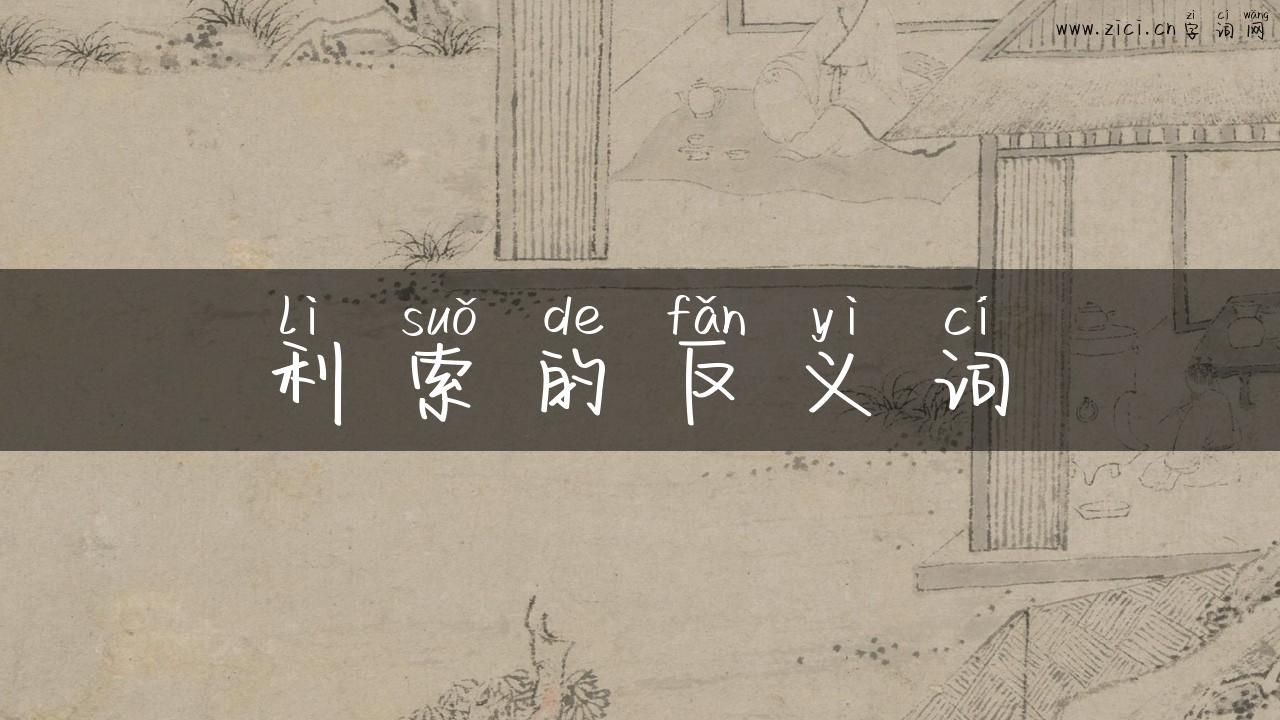 zì cí wǎng
www.zici.cn字词网
lì suǒ de fǎn yì cí
利索的反义词